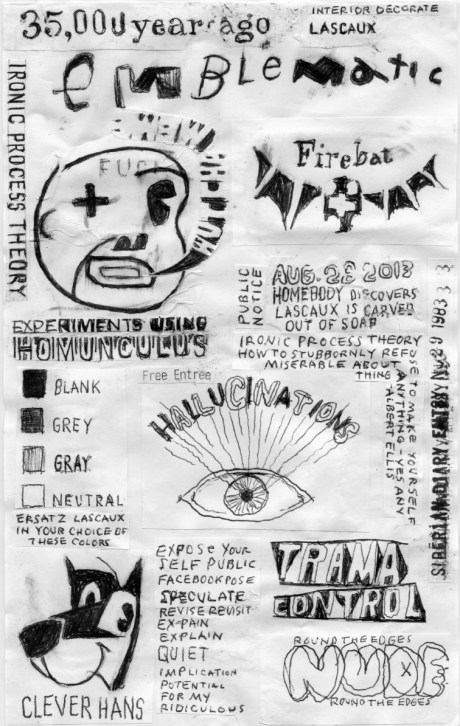 35,000 years ago
INTERIOR DECORATE
LASCAUX
emblematic
IRONIC PROCESS THEORY
FUCK
Firebat
PUBLIC
NOTICE
AUG. 28 2013
HOMEBODY DISCOVERS
LASCAUX IS CARVED
OUT OF SOAP
EXPERIMENTS USING
HOMUNCULUS
IRONIC PROCESS THEORY
HOW TO STUBBORNLY REFU
SE TO MAKE YOURSELF
MISERABLE ABOUT
ANYTHING - YES ANY
THING
ALBERT ELLIS
SIBERIAN DIARY ENTRY
BLANK
GREY
GRAY
NEUTRAL
ERSATZ LASCAUX
IN YOUR CHOICE OF
THESE COLORS
Free Entrée
HALLUCINATIONS
CLEVER HANS
EXPOSE YOUR
SELF PUBLIC
FACEBOOKPOSE
SPECULATE
REVISE REVISIT
EX-PAIN
EXPLAIN
QUIET
IMPLICATION
POTENTIAL
FOR MY
RIDICULOUS
TRAMA
CONTROL
ROUND THE EDGES
NUDE
ROUND THE EDGES